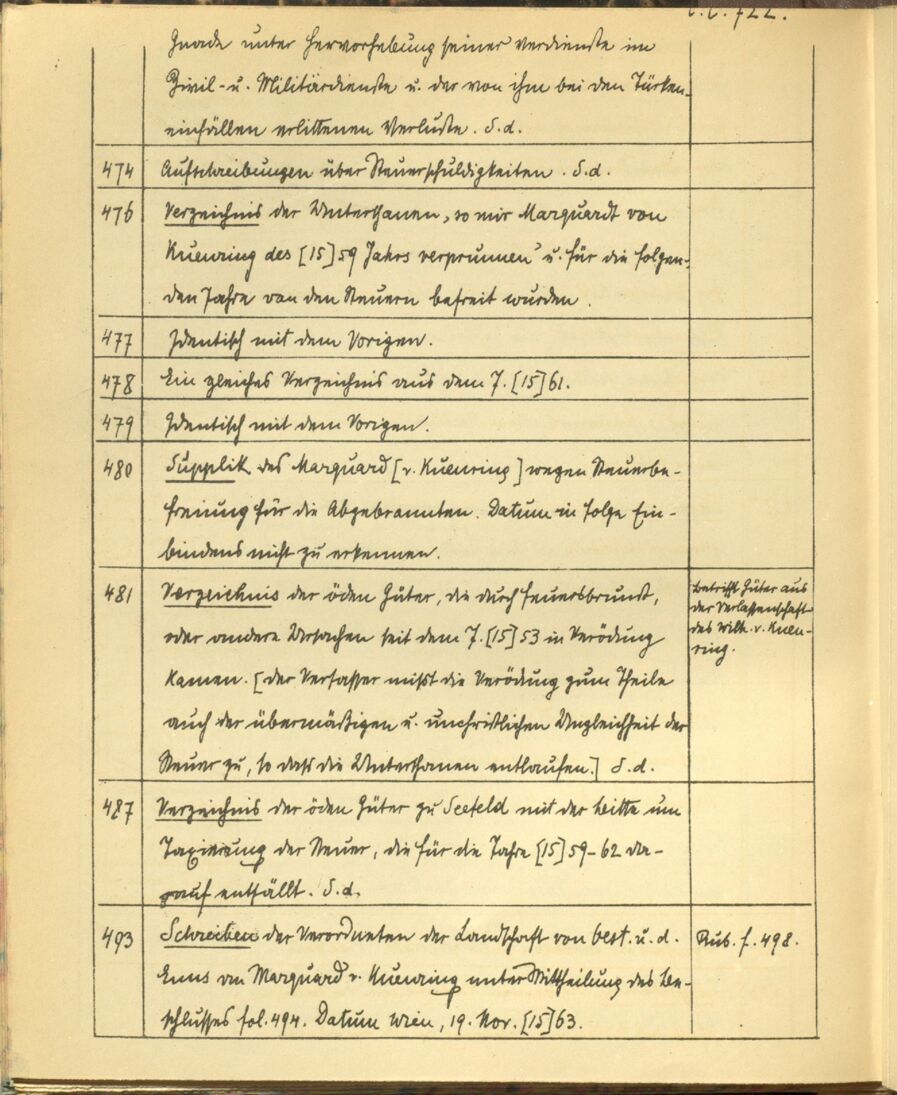 C.C. 722.
Gnade unter Hervorhebung seiner Verdienste im
Zivil- u. Militärdienste u. der von ihm bei den Türken-
einfällen erlittenen Verluste. S.d.
474 Aufschreibungen über Steuerschuldigkeiten. S.d.
476 Verzeichnis der Unterthanen, so mir Marquardt von
Kuenring des [15]59 Jahrs verprunnen u. für die folgen-
den Jahre von den Steuern befreit wurden.
477 Identisch mit dem Vorigen.
478 Ein gleiches Verzeichnis aus dem J. [15]61.
479 Identisch mit dem Vorigen.
480 Supplik des Marquard [v. Kuenring] wegen Steuerbe-
freiung für die Abgebrannten. Datum in Folge Ein-
bindens nicht zu erkennen.
481 Verzeichnis der öden Güter, die durch Feuersbrunst,
oder andere Ursachen seit dem J. [15]53 in Verödung
kamen. [der Verfasser mißt die Verödung zum Theile
auch der übermäßigen u. unchristlichen Ungleichheit der
Steuer zu, so daß die Unterthanen entlaufen.] S.d.
Betrifft Güter aus
der Verlassenschaft
des Wilh. v. Kuen-
ring.
487 Verzeichnis der öden Güter zu Seefeld mit der Bitte um
Taxierung der Steuer, die für die Jahre [15]59-62 da-
rauf entfällt. S.d.
493 Schreiben der Verordneten der Landschaft von Oest. u. d.
Enns an Marquard v. Kuenring unter Mittheilung des Be-
schlusses fol. 494. Datum Wien, 19. Nov. [15]63.
Rub. f. 498.